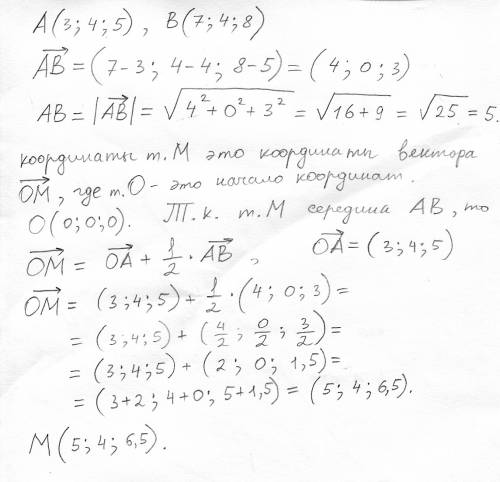 A(3; 4; 5) , B(7; 4; 8)
AB→ = (7-3; 4-4; 8-5) = (4; 0; 3)
AB = |AB→| = √(4² + 0² + 3²) = √(16+9) = √25 = 5.
координаты т. М это координаты вектора
OM→, где т. О - это начало координат.
O(0; 0; 0). Т. к. т. М середина AB, то
OM→ = OA→ + 1/2 · AB→, OA→ = (3; 4; 5)
OM→ = (3; 4; 5) + 1/2 · (4; 0; 3) =
= (3; 4; 5) + (4/2; 0/2; 3/2) =
= (3; 4; 5) + (2; 0; 1,5) =
= (3+2; 4+0; 5+1,5) = (5; 4; 6,5).
M(5; 4; 6,5).